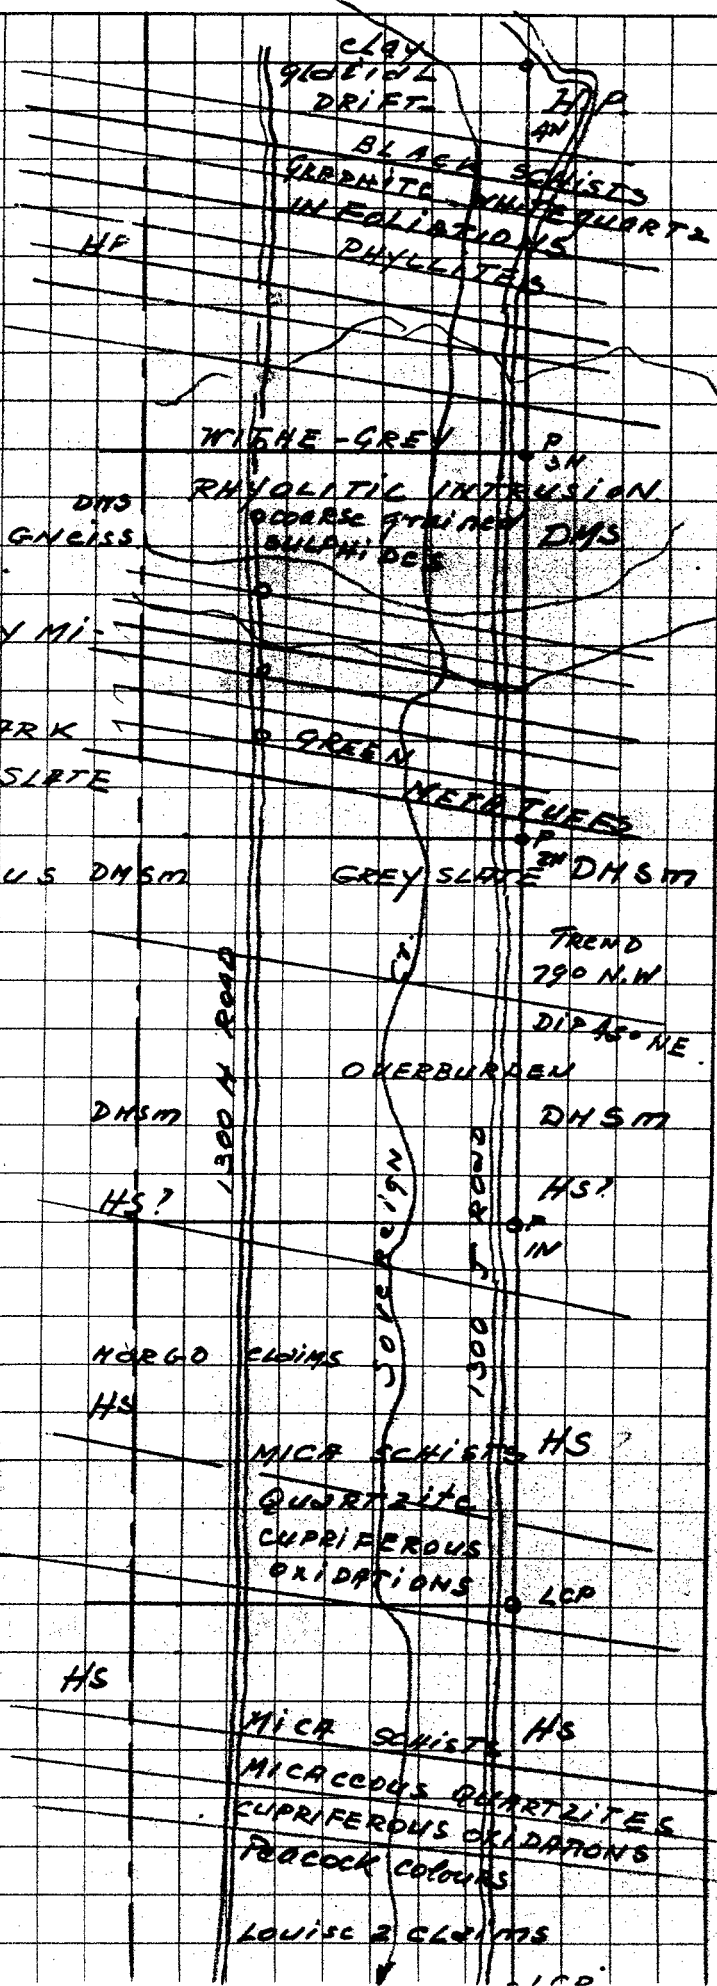 CLAY
glacial
DRIFT
HP
AN
BLACK SCHISTS
GRAPHITC - WHITE QUARTZ
IN FOLIATIONS
HP
PHYLLITEIS
WITHE - GREY
P
3N
RHYOLITIC INTRUSION
DMS
coarse grained
DMS
GNeiSS
SULPHIDES
Y Mi-
ARK
GREEN
SLATE
META TUFFS
P
2N
US DMSm
GREY SLATE
DHSm
TREND
790 N.W
Cr.
DIP 450 NE.
1300 N ROAD
OVERBURDEN
DHSm
DHSm
HS?
HS?
P
IN
Sovereign
1300 J ROAD
MARGO CLAIMS
HS
MICA SCHISTS
HS
QUARTZitc
CUPRIFEROUS
OXIDATIONS
LCP
HS
MICA SCHISTS
HS
MICACEOUS QUARTZITES
CUPRIFEROUS OXIDATIONS
Peacock Colours
Louise 2 Claims
LCP.